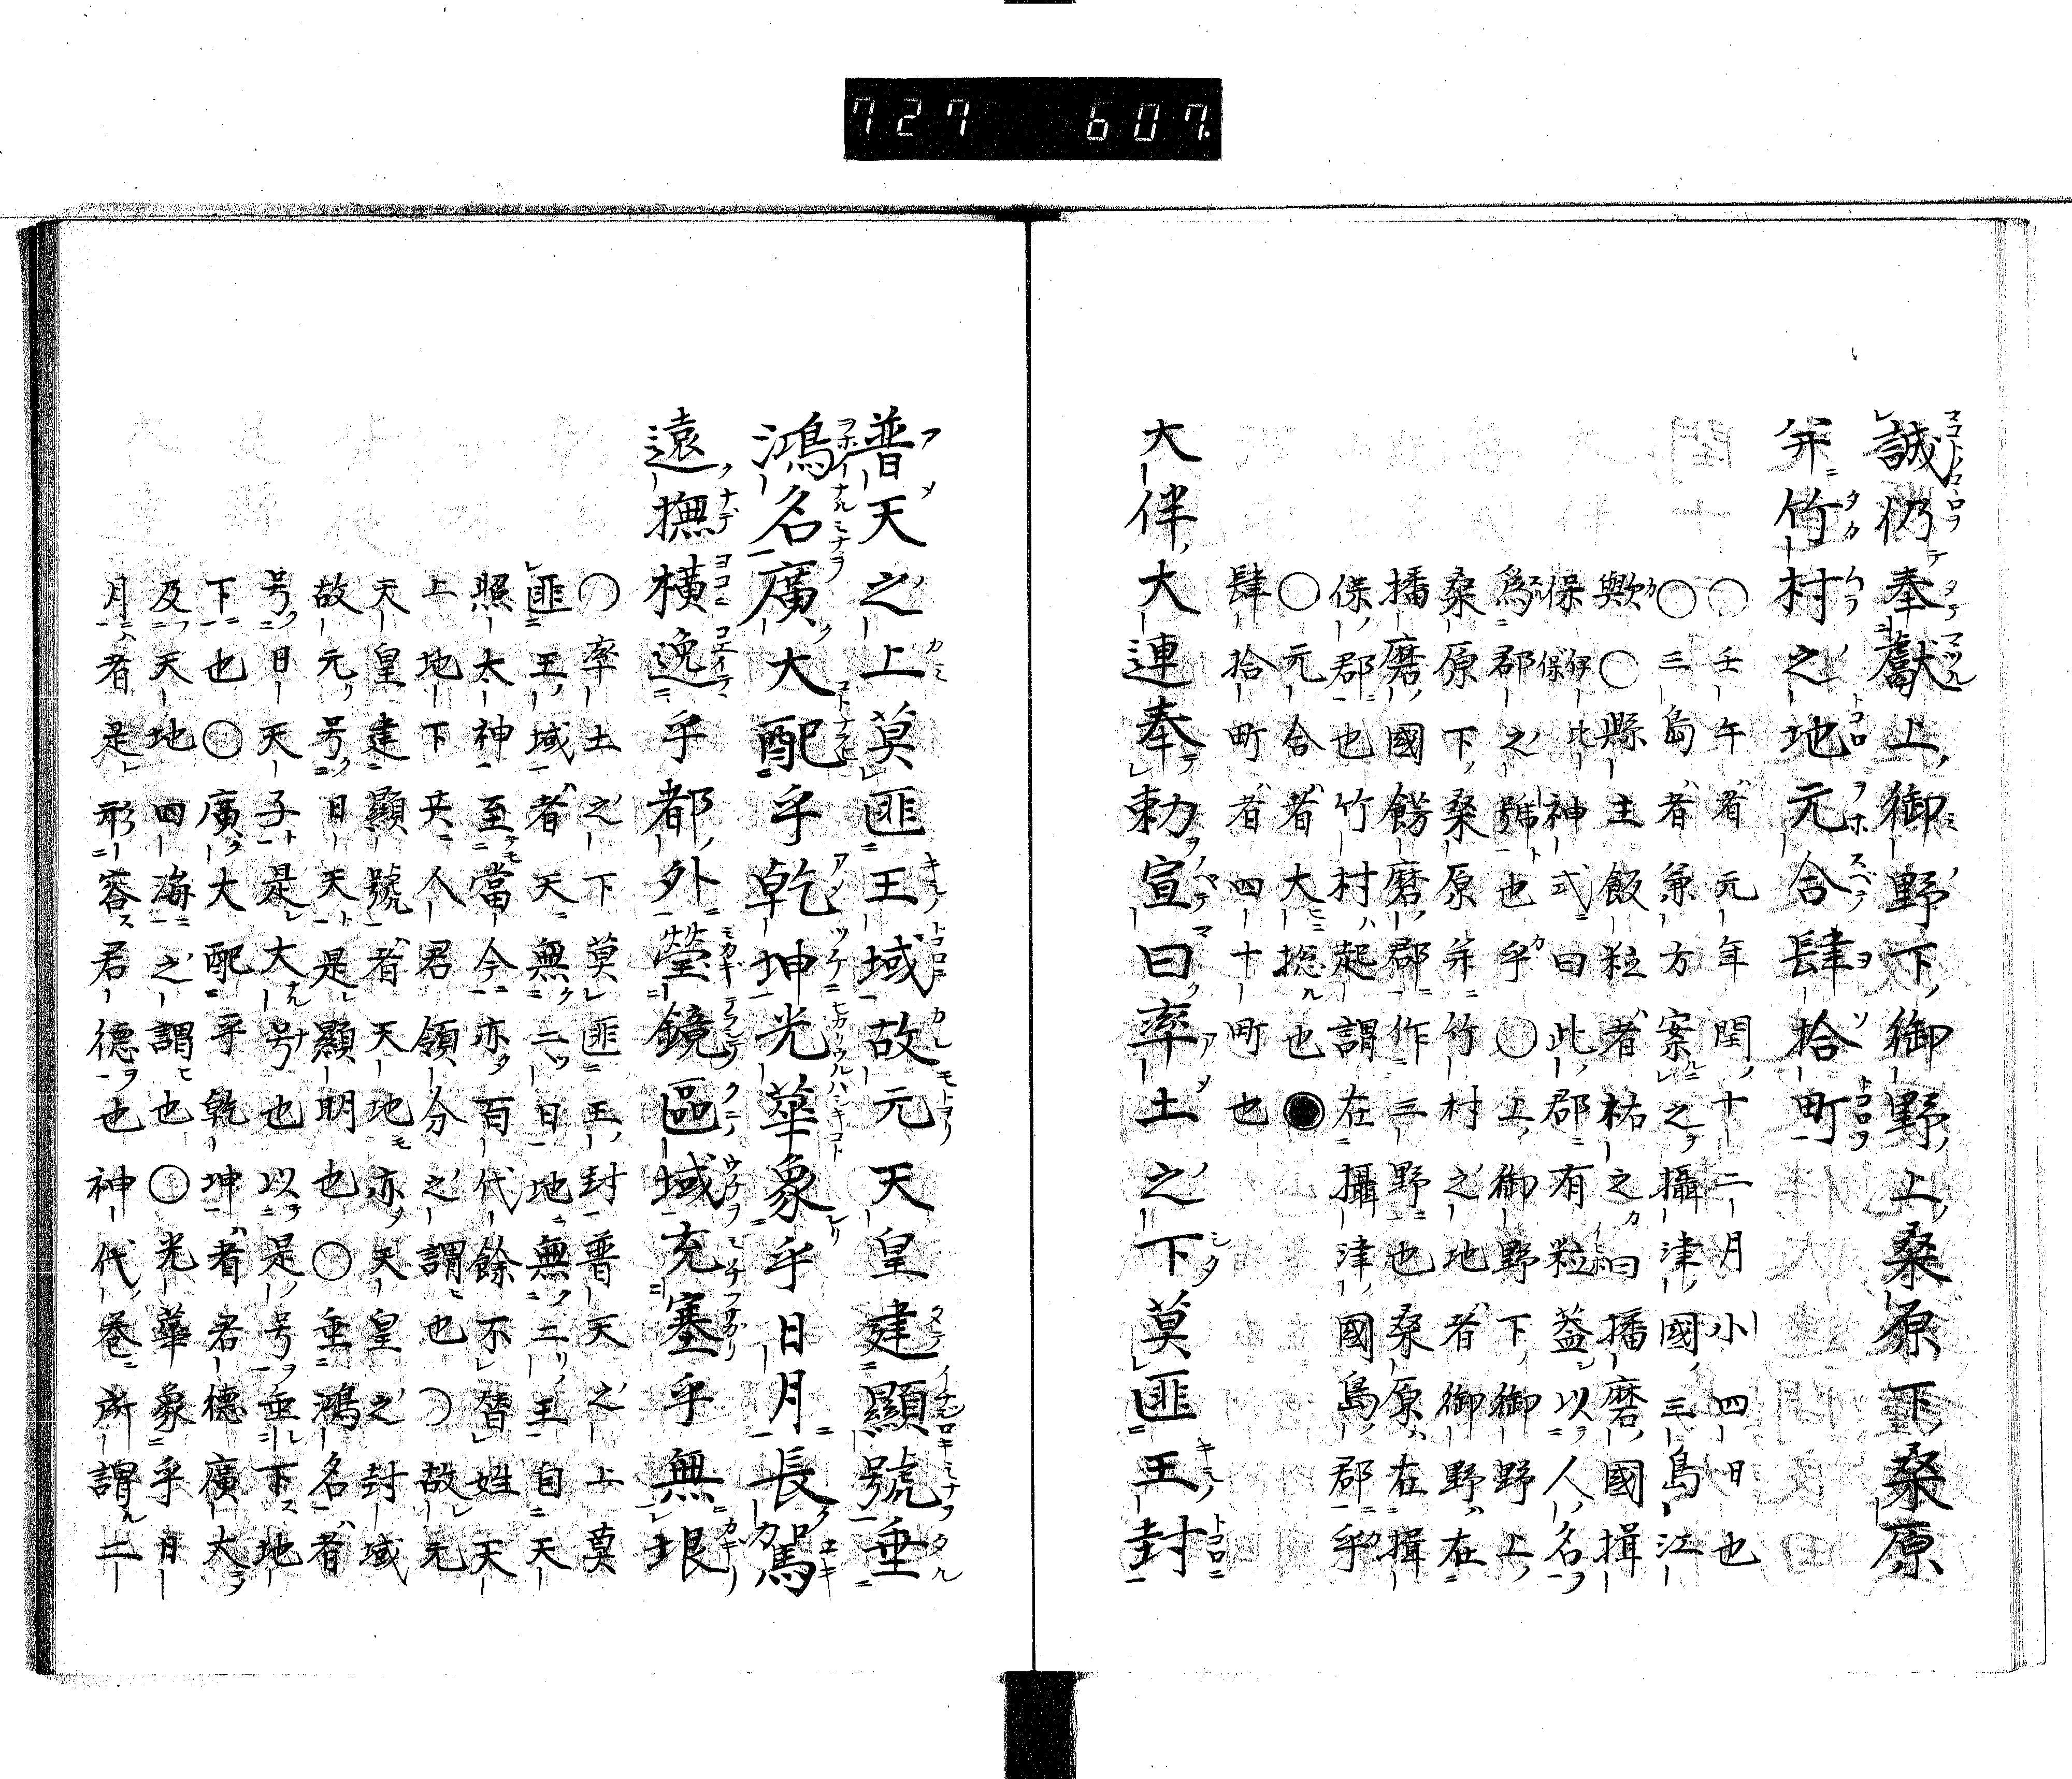 727 607.
誠仍奉獻上御野下御野上桑原下桑原
并竹村之地元合肆拾町
〇壬午者元年閏十二月小四日也
〇三島者兼方案之攝津國三島江
歟〇縣主飯粒者祐之曰播磨國揖
保郡伊保此神式曰此郡有粒蓋以人名
爲郡之號也乎〇上御野下御野上
桑原下桑原并竹村之地者御野在
播磨國餝磨郡作三野也桑原在揖
保郡也竹村起謂在攝津國島郡乎
〇元合者大揔也●
肆拾町者四十町也
大伴大連奉勅宣曰率土之下莫匪王封
普天之上莫匪王域故元天皇建顯號垂
鴻名廣大配乎乾坤光華象乎日月長駕
遠撫横逸乎都外瑩鏡區域充塞乎無垠
〇率土之下莫匪王封普天之上莫
匪王域者天無二日地無二王自天
照太神至當今亦百代餘不替姓天
上地下共人君領分之謂也〇故元
天皇建顯號者天地亦天皇之封域
故元号曰天是顯明也〇垂鴻名者
号曰天子是大号也以是号垂下地
下也〇廣大配乎乾坤者君德廣大
及天地四海之謂也〇光華象乎日
月者是形容君德也神代巻所謂二